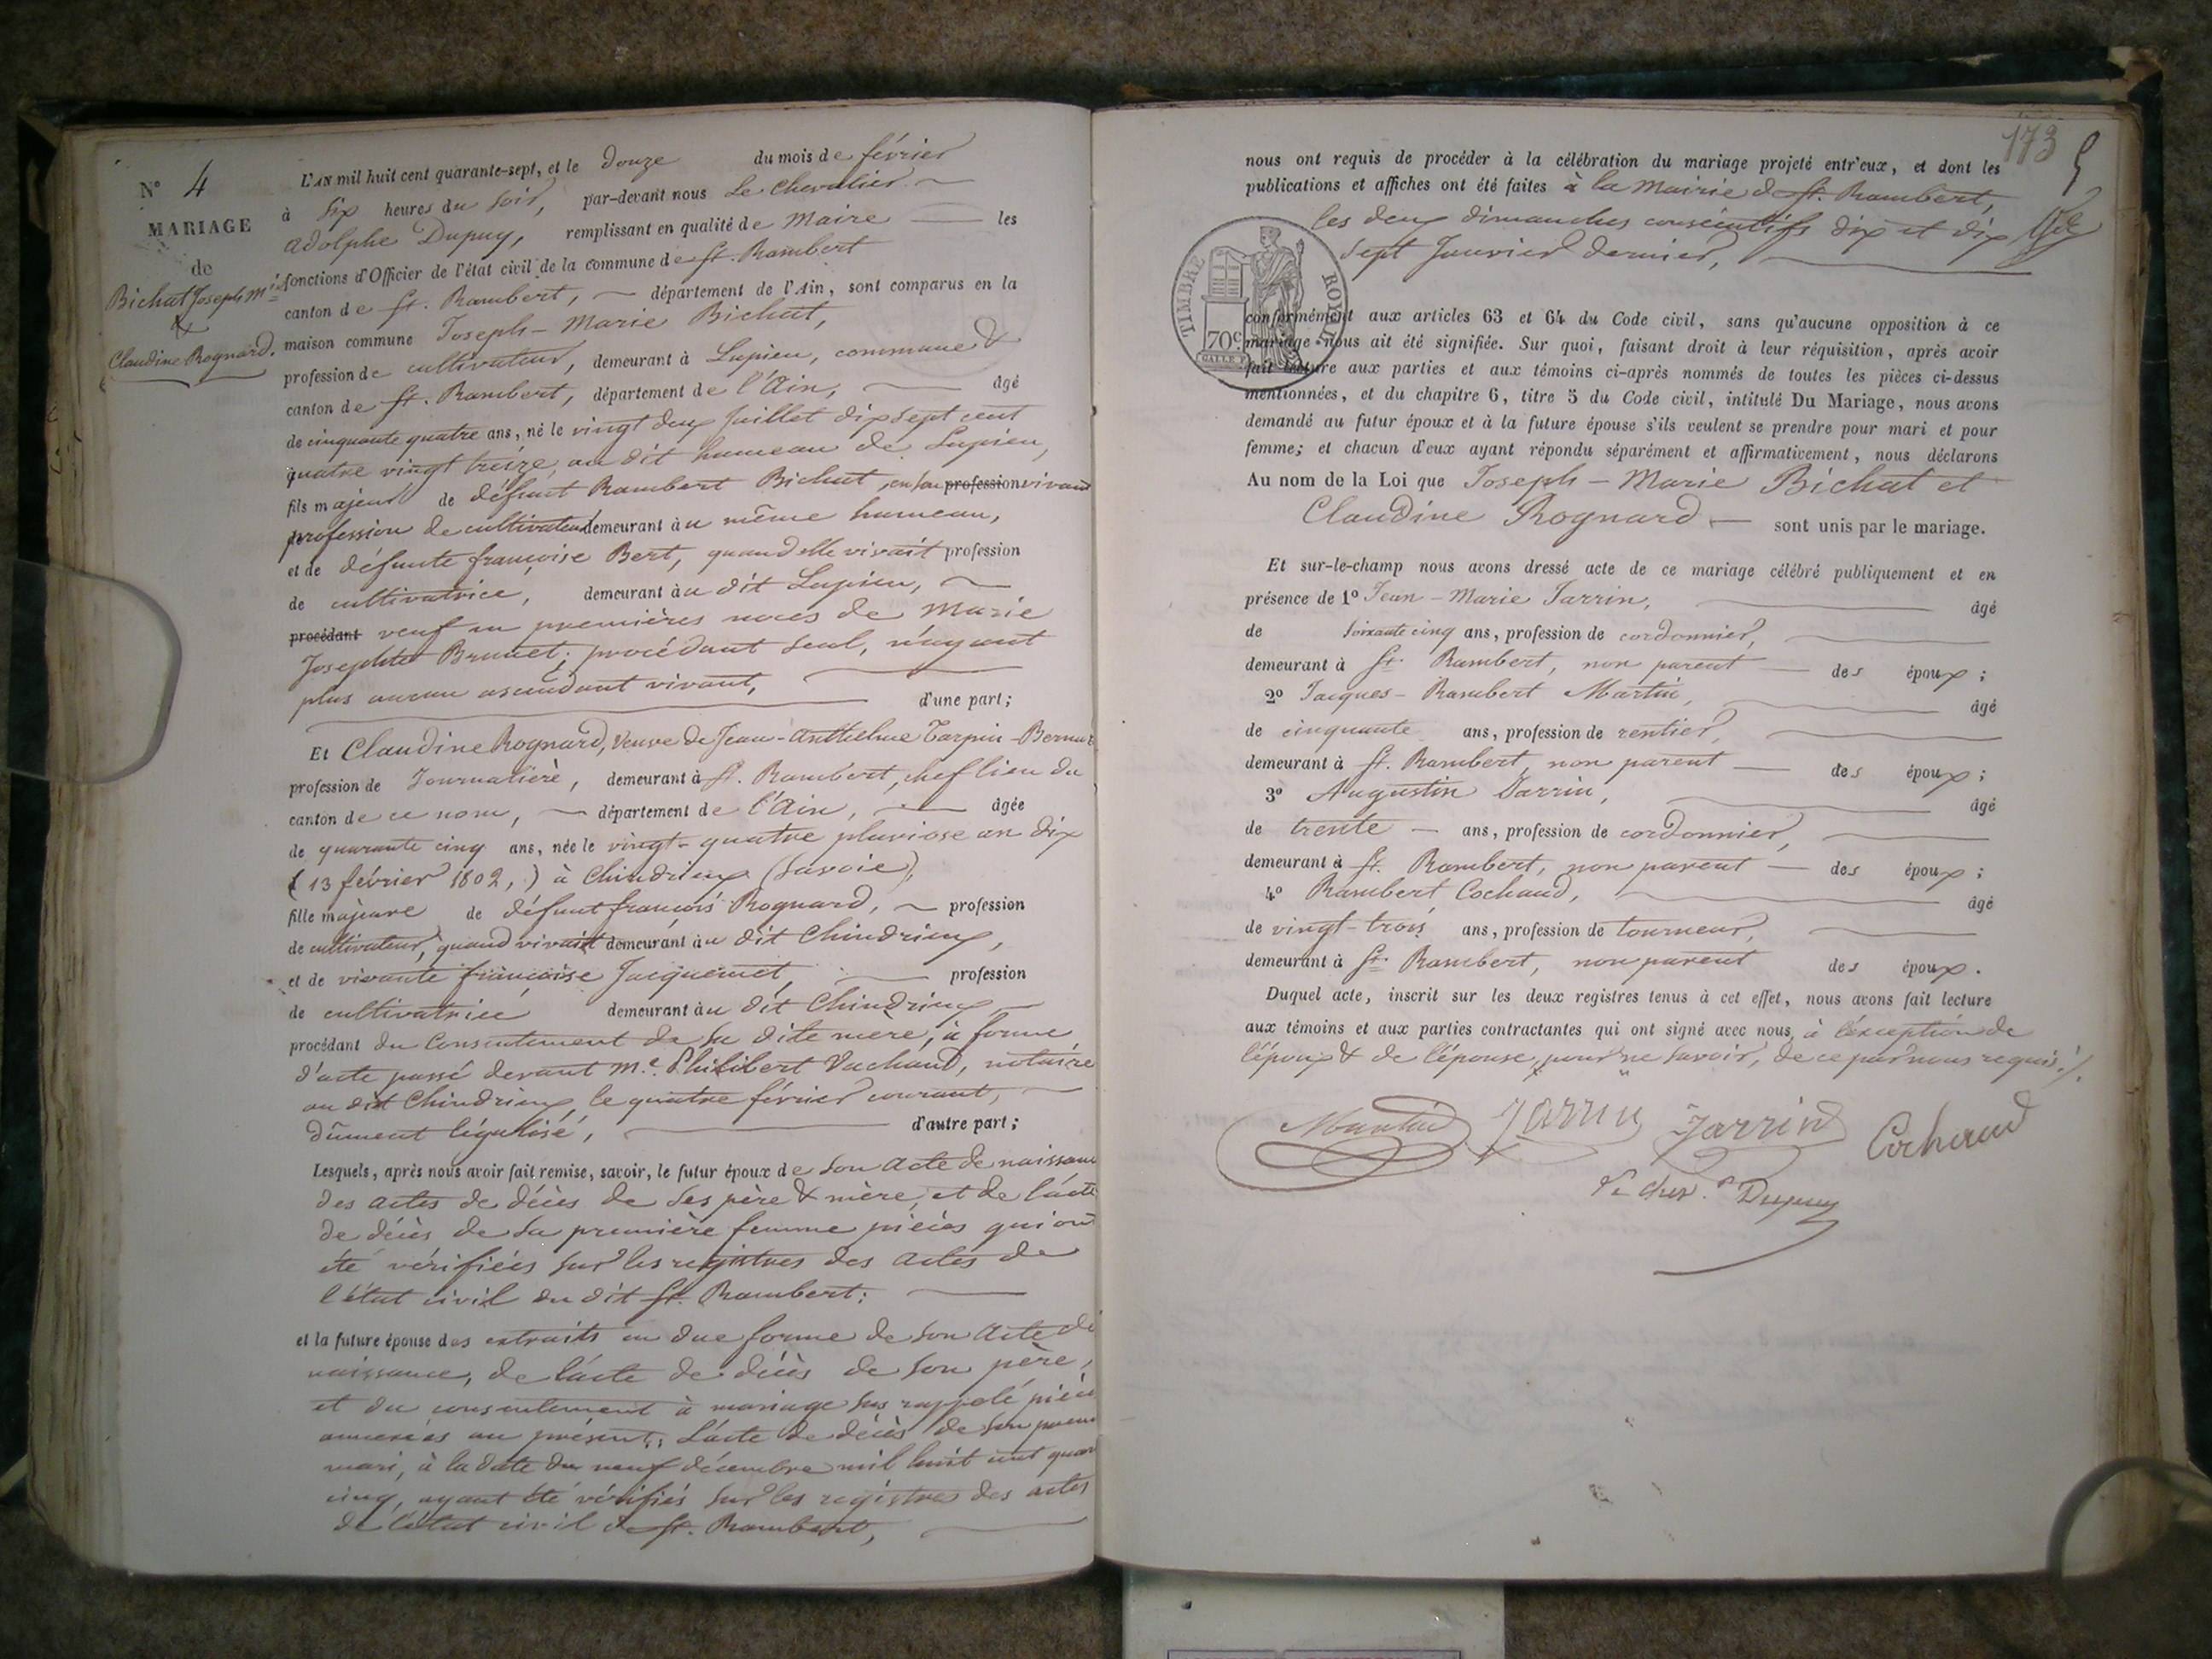 N° 4
MARIAGE
de
Bichat Joseph Mie
&
Claudine Rognard.
L'AN mil huit cent quarante-sept, et le douze du mois de février
à six heures du soir, par-devant nous Le Chevalier
Adolphe Dupuy, remplissant en qualité de Maire les
fonctions d'Officier de l'état civil de la commune de St. Rambert
canton de St. Rambert, département de l'Ain, sont comparus en la
maison commune Joseph-Marie Bichat,
profession de cultivateur, demeurant à Lupieu, commune &
canton de St. Rambert, département de l'Ain, âgé
de cinquante quatre ans, né le vingt deux Juillet dix sept cent
quatre vingt treize, au dit hameau de Lupieu,
fils majeur de défunt Rambert Bichat, en son profession vivant
profession de cultivateur demeurant au même hameau,
et de défunte françoise Bert, quand elle vivait profession
de cultivatrice, demeurant au dit Lupieu,
procédant veuf en premières noces de Marie
Josephte Brunet; procédant seul, n'ayant
plus aucun ascendant vivant, d'une part;
Et Claudine Rognard, Veuve de Jean-Anthelme Tarpin-Bernard
profession de Journalière, demeurant à St. Rambert, chef lieu du
canton de ce nom, département de l'Ain, âgée
de quarante cinq ans, née le vingt-quatre pluviose an dix
(13 février 1802,) à Chindrieux (Savoie),
fille majeure de défunt françois Rognard, profession
de cultivateur, quand vivait demeurant au dit Chindrieux,
et de vivante françoise Jacquemet, profession
de cultivatrice demeurant au dit Chindrieux
procédant du Consentement de sa dite mère, à forme
d'acte passé devant Me. Philibert Vachaud, notaire
au dit Chindrieux le quatre février courant,
dûment légalisé, d'autre part;
Lesquels, après nous avoir fait remise, savoir, le futur époux de son acte de naissance
des actes de décès de ses père & mère, et de l'acte
de décès de sa première femme pièces qui ont
été vérifiées sur les registres des actes de
l'état civil du dit St. Rambert;
et la future épouse des extraits en due forme de son acte de
naissance, de l'acte de décès de son père,
et du consentement à mariage sus rappelé pièces
annexées au présent; l'acte de décès de son premi
mari, à la date du neuf décembre mil huit cent quar
cinq, ayant été vérifiés sur les registres des actes
de l'état civil de St. Rambert,
173
5
nous ont requis de procéder à la célébration du mariage projeté entr'eux, et dont les
publications et affiches ont été faites à la Mairie de St. Rambert,
les deux dimanches consécutifs dix et dix
sept Janvier dernier,
TIMBRE ROYAL
70c
conformément aux articles 63 et 64 du Code civil, sans qu'aucune opposition à ce
mariage nous ait été signifiée. Sur quoi, faisant droit à leur réquisition, après avoir
fait lecture aux parties et aux témoins ci-après nommés de toutes les pièces ci-dessus
mentionnées, et du chapitre 6, titre 5 du Code civil, intitulé Du Mariage, nous avons
demandé au futur époux et à la future épouse s'ils veulent se prendre pour mari et pour
femme; et chacun d'eux ayant répondu séparément et affirmativement, nous déclarons
Au nom de la Loi que Joseph-Marie Bichat et
Claudine Rognard sont unis par le mariage.
Et sur-le-champ nous avons dressé acte de ce mariage célébré publiquement et en
présence de 1° Jean-Marie Jarrin, âgé
de soixante cinq ans, profession de cordonnier,
demeurant à St. Rambert, non parent des époux;
2° Jacques-Rambert Martin, âgé
de cinquante ans, profession de rentier,
demeurant à St. Rambert, non parent des époux;
3° Augustin Jarrin, âgé
de trente ans, profession de cordonnier,
demeurant à St. Rambert, non parent des époux;
4° Rambert Cochaud, âgé
de vingt-trois ans, profession de tourneur,
demeurant à St. Rambert, non parent des époux.
Duquel acte, inscrit sur les deux registres tenus à cet effet, nous avons fait lecture
aux témoins et aux parties contractantes qui ont signé avec nous, à l'exception de
l'époux & de l'épouse, pour ne savoir, de ce par nous requis./.
Martin Jarrin Jarrin
Dupuy